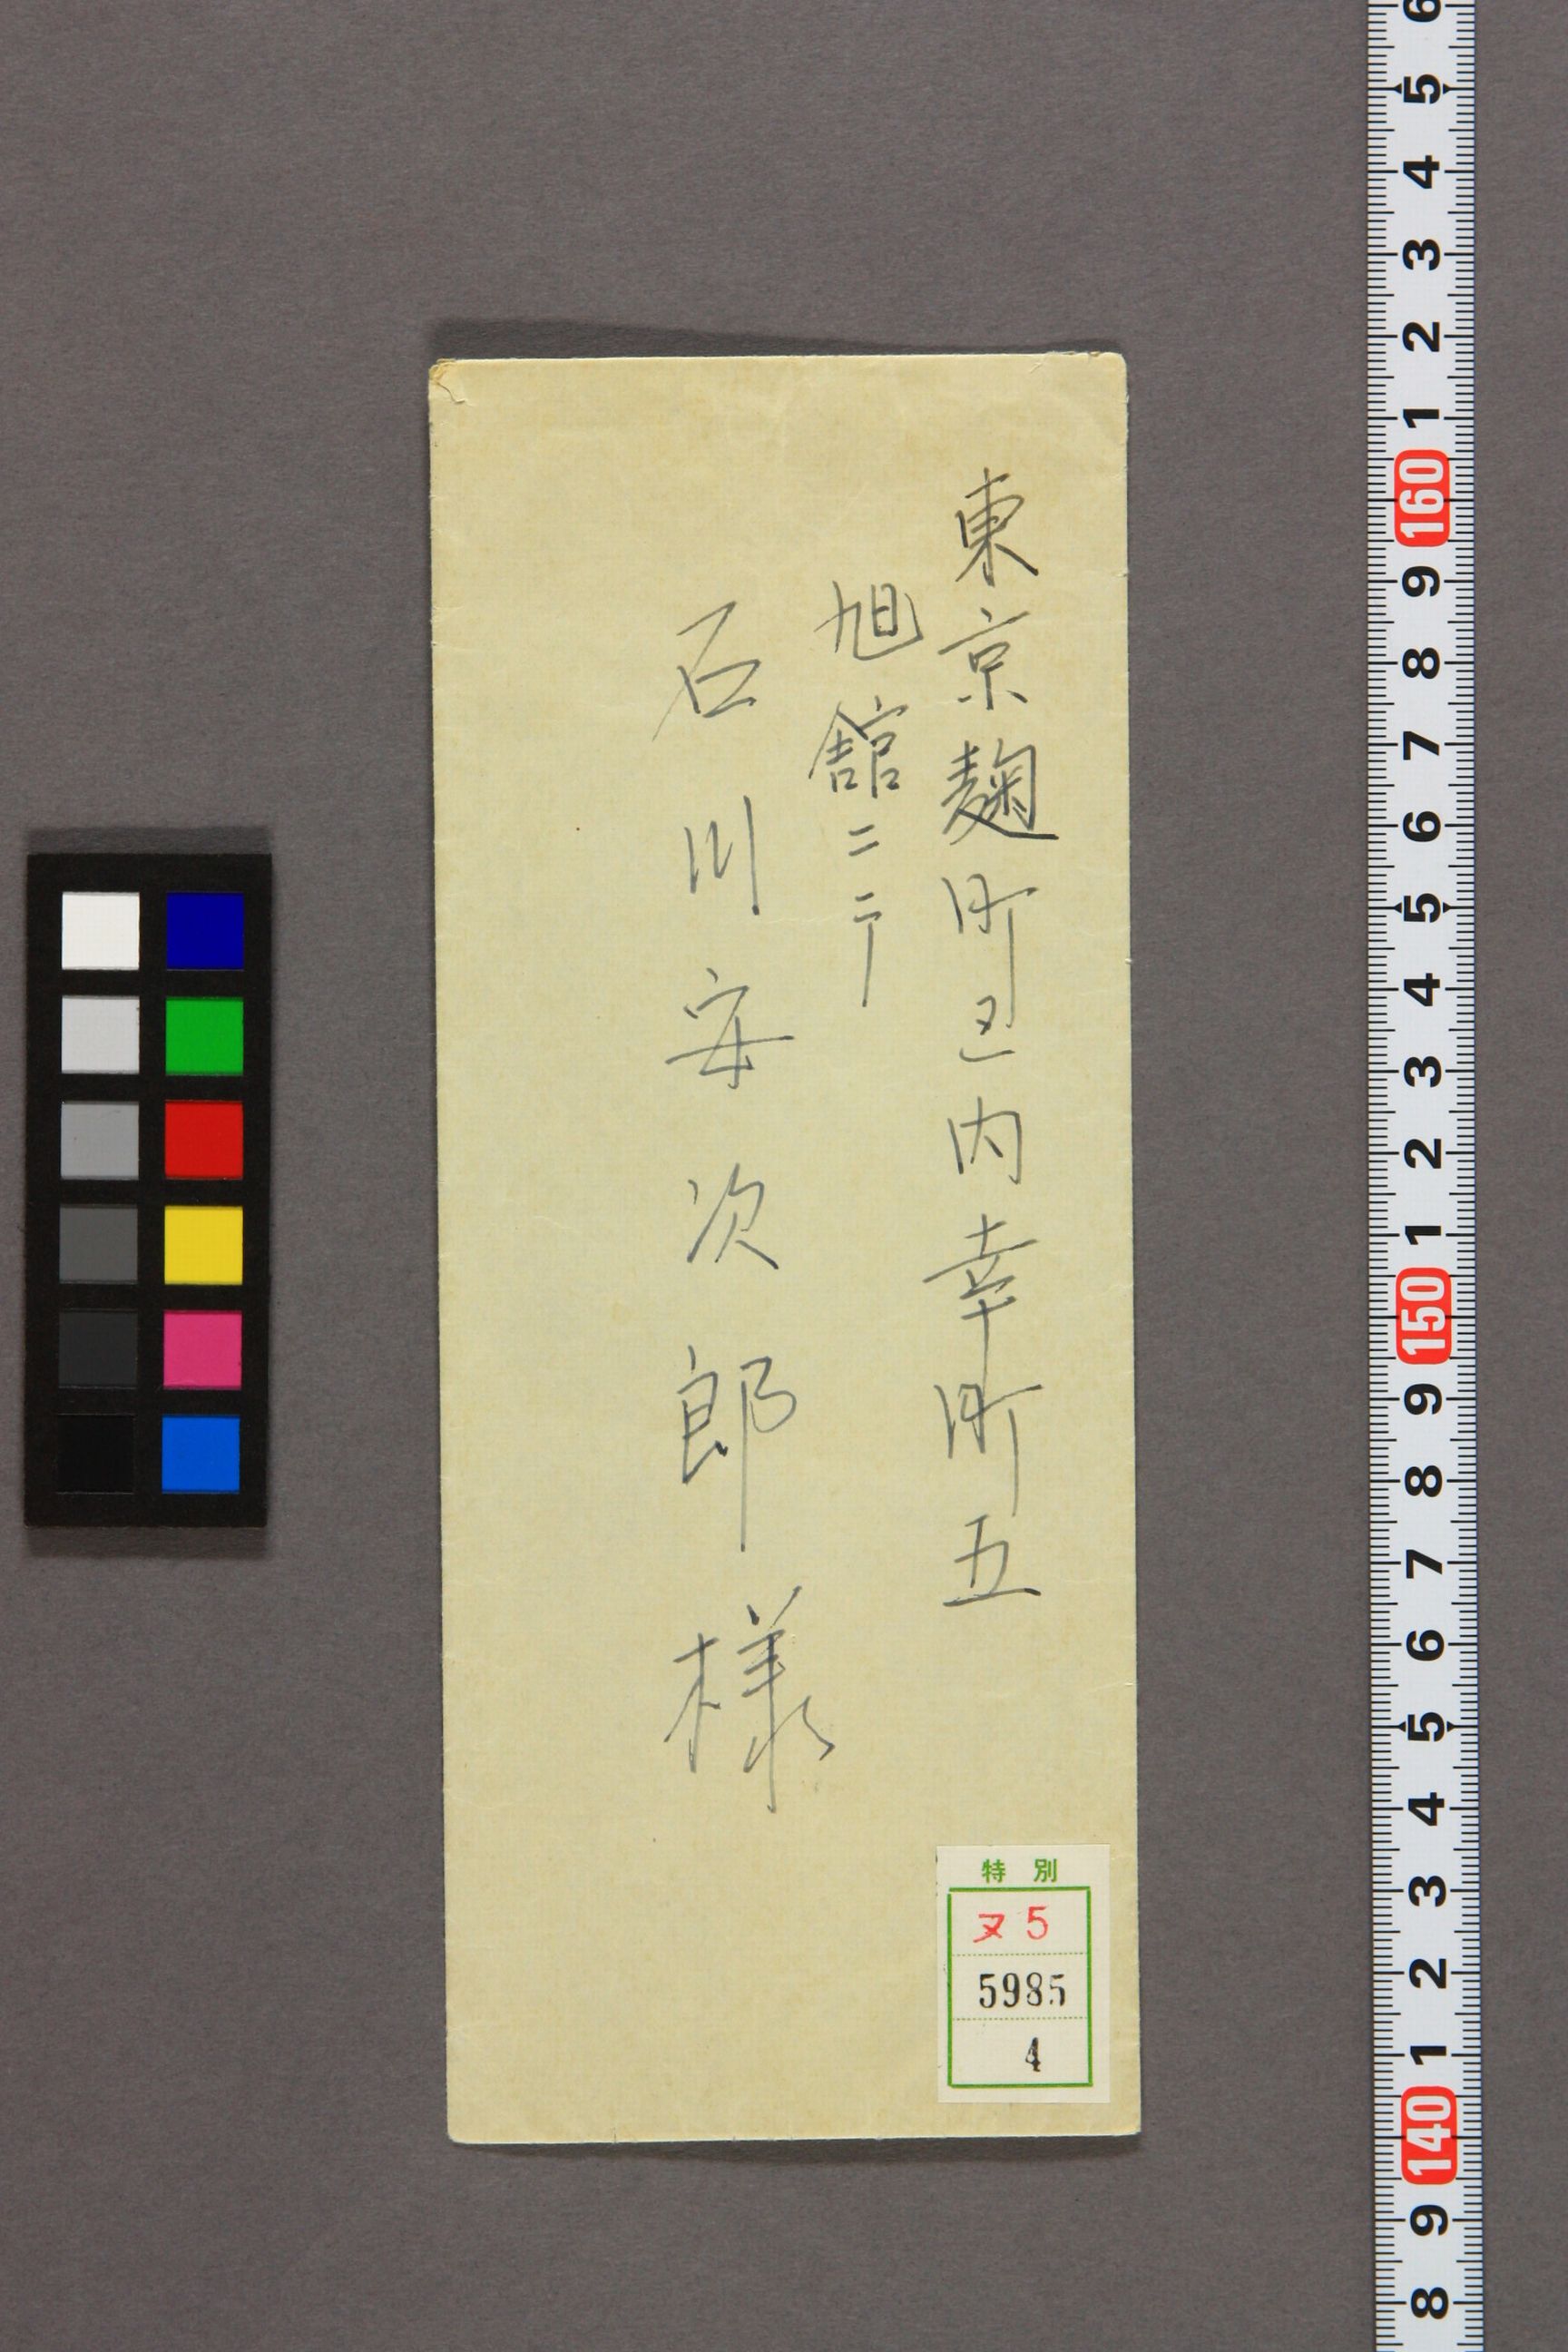 東京麹町区内幸町五
旭舘ニテ
石川安次郎様
特別
ヌ5
5985
4
6
5
4
3
2
1
160
9
8
7
6
5
4
3
2
1
150
9
8
7
6
5
4
3
2
1
140
9
8